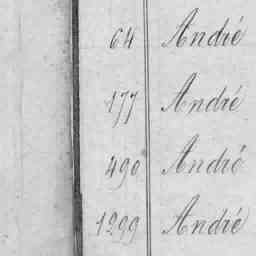 64 André
177 André
490 André
1299 André